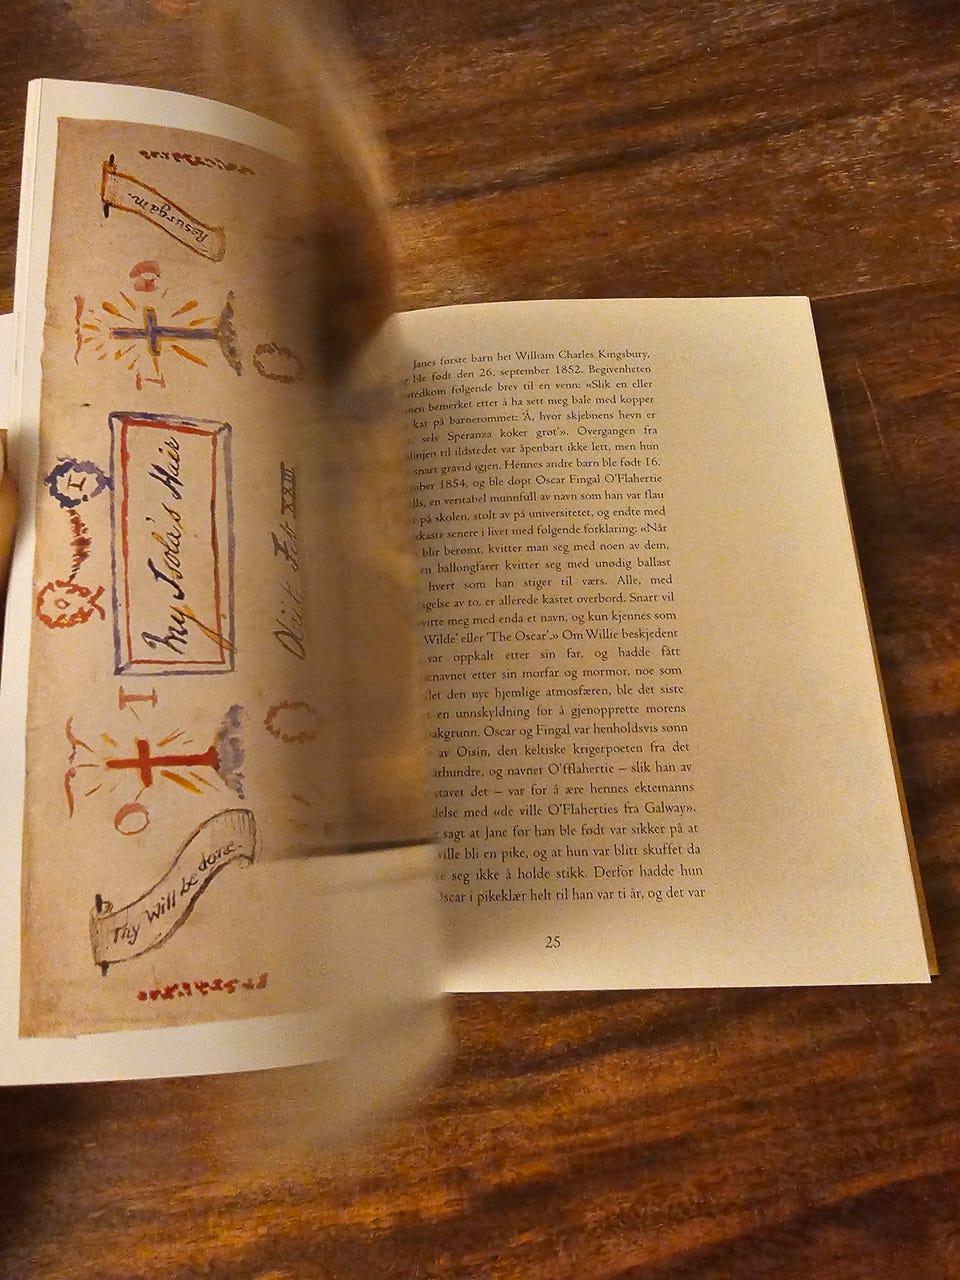 Resurgam
My Isola's Hair
Obiit Feb XXIII
Thy Will be done.
Janes første barn het William Charles Kingsbury,
ble født den 26. september 1852. Begivenheten
følgende brev til en venn: «Slik en eller
bemerket etter å ha sett meg bale med kopper
kar på barnerommet: 'Å, hvor skjebnens hevn er
selv Speranza koker grøt'». Overgangen fra
til ildstedet var åpenbart ikke lett, men hun
snart gravid igjen. Hennes andre barn ble født 16.
1854, og ble døpt Oscar Fingal O'Flahertie
en veritabel munnfull av navn som han var flau
på skolen, stolt av på universitetet, og endte med
senere i livet med følgende forklaring: «Når
blir berømt, kvitter man seg med noen av dem,
en ballongfarer kvitter seg med unødig ballast
hvert som han stiger til værs. Alle, med
av to, er allerede kastet overbord. Snart vil
meg med enda et navn, og kun kjennes som
Wilde' eller 'The Oscar'.» Om Willie beskjedent
var oppkalt etter sin far, og hadde fått
etter sin morfar og mormor, noe som
den nye hjemlige atmosfæren, ble det siste
en unnskyldning for å gjenopprette morens
Oscar og Fingal var henholdsvis sønn
av Oisín, den keltiske krigerpoeten fra det
og navnet O'fflahertie – slik han av
stavet det – var for å ære hennes ektemanns
med «de ville O'Flaherties fra Galway».
sagt at Jane før han ble født var sikker på at
ville bli en pike, og at hun var blitt skuffet da
seg ikke å holde stikk. Derfor hadde hun
Oscar i pikeklær helt til han var ti år, og det var
25